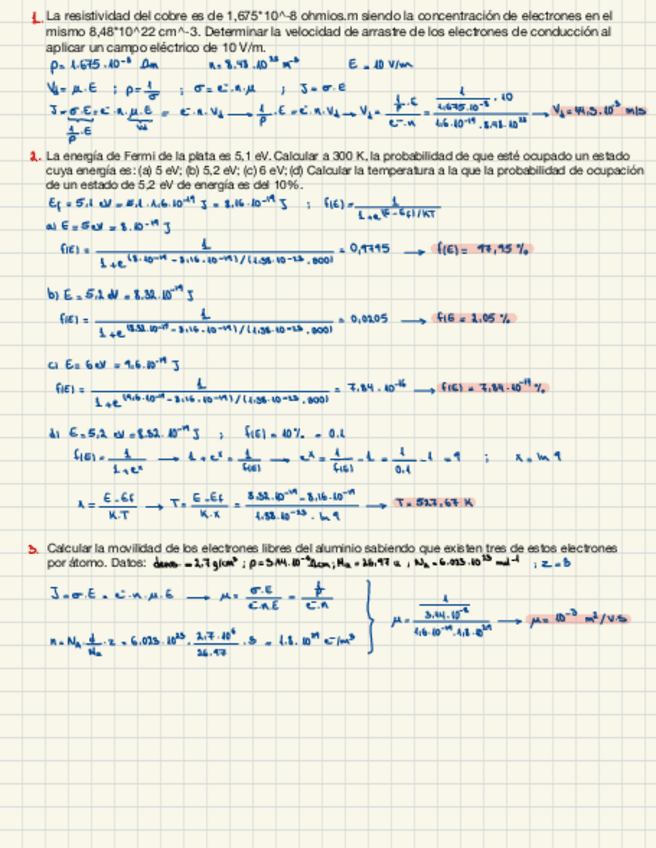 1. La resistividad del cobre es de 1,675*10^-8 ohmios.m siendo la concentración de electrones en el
mismo 8,48*10^22 cm^-3. Determinar la velocidad de arrastre de los electrones de conducción al
aplicar un campo eléctrico de 10 V/m.
ρ = 1.675·10⁻⁸ Ωm n = 8,48·10²⁸ m⁻³ E = 10 V/m
V_d = μ·E ; ρ = 1/σ ; σ = e⁻·n·μ ; J = σ·E
J = σ·E = e⁻·n·μ·E = e⁻·n·V_d → 1/ρ·E = e⁻·n·V_d → V_d = (1/ρ·E)/(e⁻·n) = (1/(1,675·10⁻⁸)·10)/(1.6·10⁻¹⁹·8.48·10²⁸) → V_d = 44,3·10⁻³ m/s
1/ρ·E V_d
2. La energía de Fermi de la plata es 5,1 eV. Calcular a 300 K, la probabilidad de que esté ocupado un estado
cuya energía es: (a) 5 eV; (b) 5,2 eV; (c) 6 eV; (d) Calcular la temperatura a la que la probabilidad de ocupación
de un estado de 5,2 eV de energía es del 10%.
E_f = 5,1 eV = 5,1·1,6·10⁻¹⁹ J = 8,16·10⁻¹⁹ J ; f(E) = 1/(1+e^(E-Ef)/KT)
a) E = 5 eV = 8·10⁻¹⁹ J
f(E) = 1/(1+e^(8·10⁻¹⁹ - 8,16·10⁻¹⁹)/(1,38·10⁻²³·300)) = 0,9795 → f(E) = 97,95 %
b) E = 5,2 eV = 8,32·10⁻¹⁹ J
f(E) = 1/(1+e^(8.32·10⁻¹⁹ - 8,16·10⁻¹⁹)/(1,38·10⁻²³·300)) = 0,0205 → f(E = 2,05 %
c) E = 6 eV = 9,6·10⁻¹⁹ J
f(E) = 1/(1+e^(9,6·10⁻¹⁹ - 8,16·10⁻¹⁹)/(1,38·10⁻²³·300)) = 7.84·10⁻¹⁶ → f(E) = 7,84·10⁻¹⁴ %
d) E = 5,2 eV = 8.32·10⁻¹⁹ J ; f(E) = 10% = 0.1
f(E) = 1/(1+eˣ) → 1+eˣ = 1/f(E) → eˣ = 1/f(E) - 1 = 1/0.1 - 1 = 9 ; x = ln 9
x = (E-Ef)/(K·T) → T = (E-Ef)/(K·x) = (8,32·10⁻¹⁹ - 8,16·10⁻¹⁹)/(1.38·10⁻²³·ln 9) → T = 527,67 K
3. Calcular la movilidad de los electrones libres del aluminio sabiendo que existen tres de estos electrones
por átomo. Datos: dens = 2,7 g/cm³ ; ρ = 3.44·10⁻⁸ Ωm ; Ma = 26,97 u ; N_A = 6.023·10²³ mol⁻¹ ; z = 3
J = σ·E = e⁻·n·μ·E → μ = σ·E/e⁻·n·E = (1/ρ)/(e⁻·n)
μ = (1/(3,44·10⁻⁸))/(1,6·10⁻¹⁹·1,8·10²⁹) → μ = 10⁻³ m²/V·s
n = N_A·d/Ma·z = 6.023·10²³·(2,7·10⁶)/26.97·3 = 1.8·10²⁹ e⁻/m³